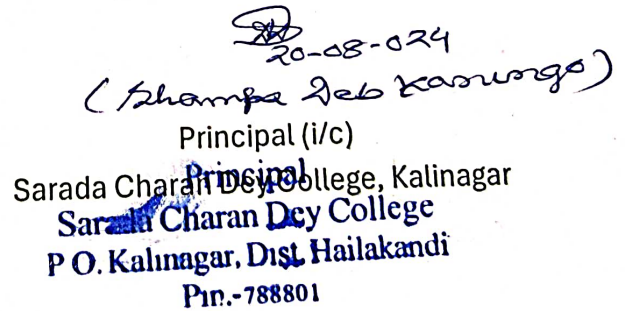 20-08-024
(Shampa Deb Kanungo)
Principal (i/c)
Principal
Sarada Charan Dey College, Kalinagar
Sarada Charan Dey College
P O. Kalinagar, Dist. Hailakandi
Pin.-788801